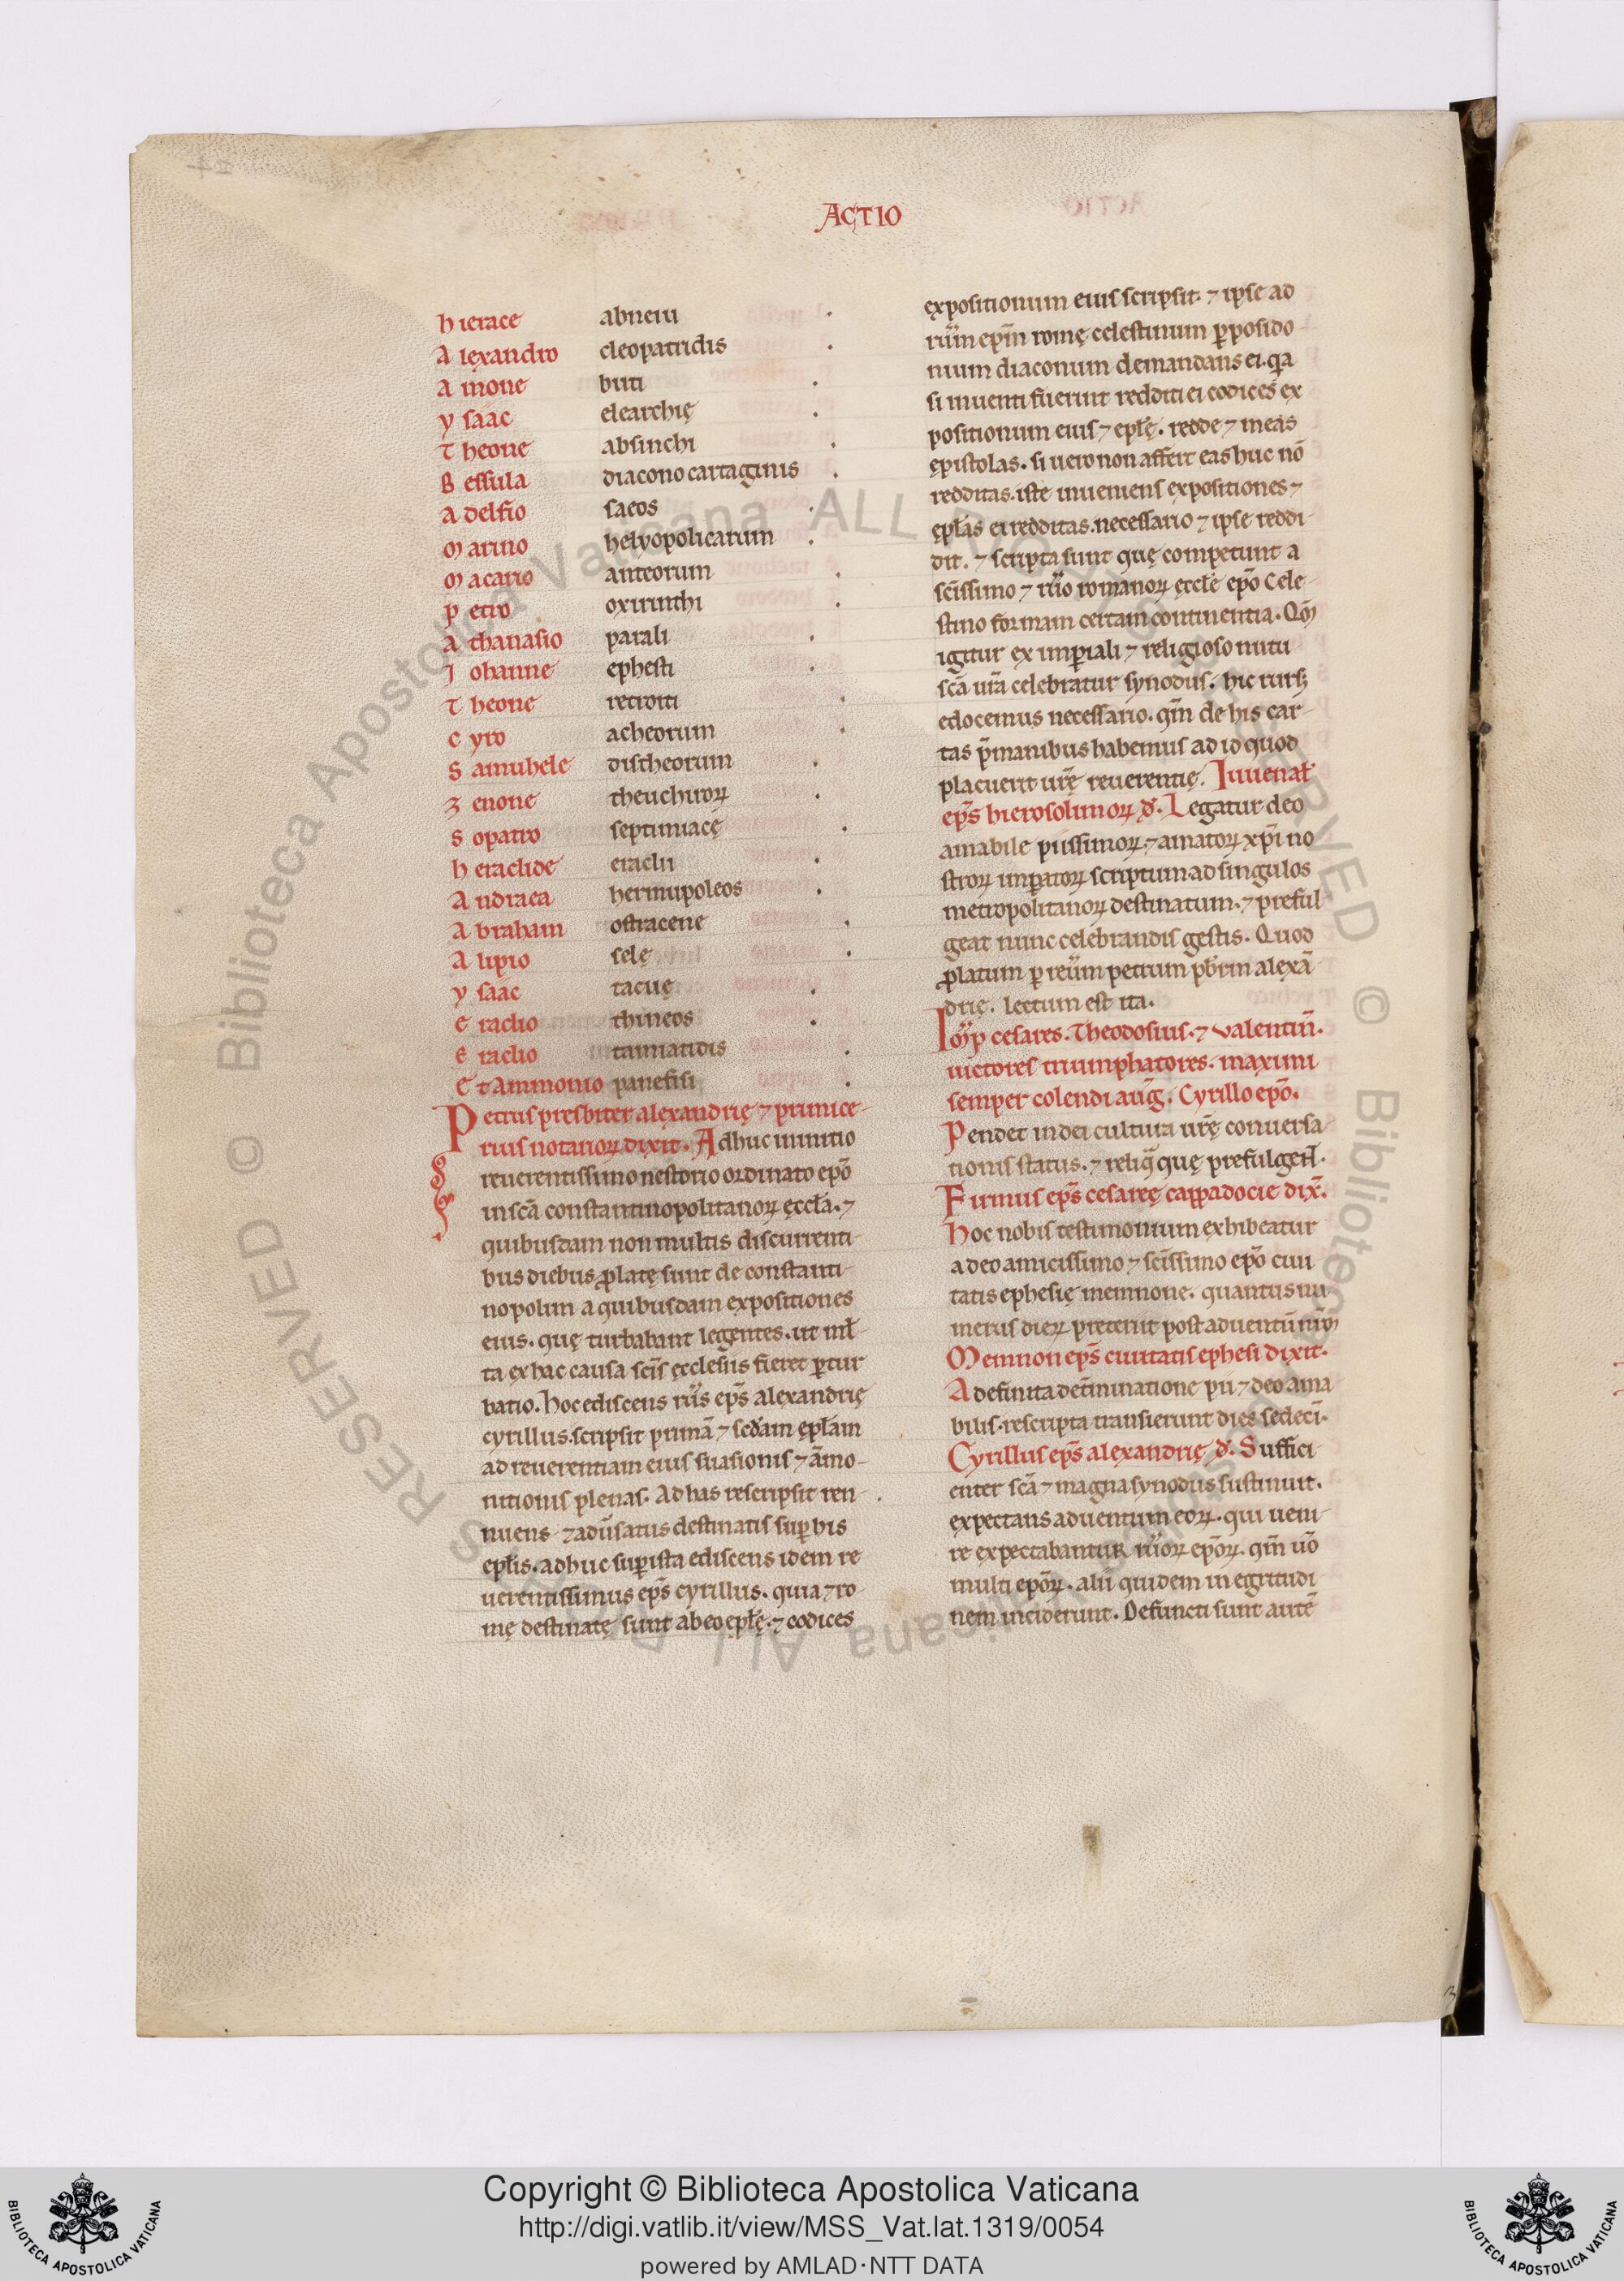 ACTIO
hierace abneiu
Alexandro cleopatridis
Amone buti
ysaac elearchię
Theone absinchi
Bessula diacono cartaginis
Adelfio saeos
Marino helyopolicarum
Macario anteorum
petro oxirinthi
Athanasio parali
Iohanne ephesti
Theone
cyro acheorum
Samuhele distheorum
zenone theuchiroꝝ
Sopatro septimiacę
heraclide eraclii
Andraea hermupoleos
Abraham ostracene
Alipio selę
ysaac tacuę
eraclio thineos
eraclio tannatidis
Et Ammonio panefisi
Petrus presbiter alexandrię ⁊ primice-
rius notarioꝝ dixit. Adhuc initio
reuerentissimo nestorio ordinato ep̄o
in sc̄a constantinopolitanoꝝ ęccła. ⁊
quibusdam non multis discurrenti-
bus diebus ꝓlatę sunt de constanti-
nopolim a quibusdam expositiones
eius. quę turbabant legentes. ut mł-
ta ex hac causa sc̄is ęcclesiis fieret ꝑtur
batio. hoc ediscens rꝰus ep̄s alexandrię
cyrillus. scripsit primā ⁊ scd̄am epłam
ad reuerentiam eius suasionis ⁊ āmo-
nitionis plenas. Ad has rescripsit ren-
nuens ⁊ adūsatus destinatis suꝑ his
epłis. adhuc suꝑ ista ediscens idem re
uerentissimus ep̄s cyrillus. quia ⁊ ro
mę destinatę sunt ab eo epłę. ⁊ codices
expositionum eius scripsit. ⁊ ipse ad
rūm ep̄m romę celestinum ꝑ posido-
nium diaconum demandans ei. q̄a
si inuenti fuerint redditi ei codices ex
positionum eius ⁊ epłę. redde ⁊ meas
ępistolas. si uero non affert eas huc nō
redditas. iste inueniens expositiones ⁊
ępłas ei redditas. necessario ⁊ ipse reddi-
dit. ⁊ scripta sunt quę competunt a
sc̄issimo ⁊ rūo romanoꝝ ęccłe ep̄o Cele-
stino formam certam continentia. Qm̄
igitur ex imꝑiali ⁊ religioso nutu
sc̄a ur̄a celebratur synodus. hic rursꝫ
edocemus necessario. qm̄ de his car-
tas p̄manibus habemus ad id quod
placuerit ur̄ę reuerentię. Iuuenał
ep̄s hierosolimoꝝ d̄. Legatur deo
amabile piissimoꝝ. ⁊ amatoꝝ xp̄i no
stroꝝ imꝑatoꝝ scriptum ad singulos
metropolitanoꝝ destinatum. ⁊ preful
geat nunc celebrandis gestis. Quod
ꝓlatum ꝑ reūm petrum pb̄rm alexā-
drię. lectum est ita.
Imp̄ cesares. Theodosius. ⁊ valentin̄.
uictores triumphatores. maximi
semper colendi auḡ. Cyrillo ep̄o.
Pendet in dei cultura ur̄ę conuersa-
tionis status. ⁊ reliq̄ quę prefulgen̄t.
Firmus ep̄s cesareę cappadocie dix̄.
hoc nobis testimonium exhibeatur
a deo amicissimo ⁊ sc̄issimo ep̄o ciui
tatis ephesię memnone. quantus nu
merus dieꝝ preteriit post aduentū nr̄m
Memnon ep̄s ciuitatis ephesi dixit.
A definita det̄minatione pii ⁊ deo ama
bilis. rescripta transierunt dies sedecī.
Cyrillus ep̄s alexandrię d̄. Suffici-
enter sc̄a ⁊ magna synodus sustinuit.
expectans aduentum eoꝝ. qui ueni-
re expectabantur rūoꝝ ep̄oꝝ. qm̄ uō
multi ep̄oꝝ. alii quidem in egritudi
nem inciderunt. Defuncti sunt autē
Copyright © Biblioteca Apostolica Vaticana
http://digi.vatlib.it/view/MSS_Vat.lat.1319/0054
powered by AMLAD·NTT DATA